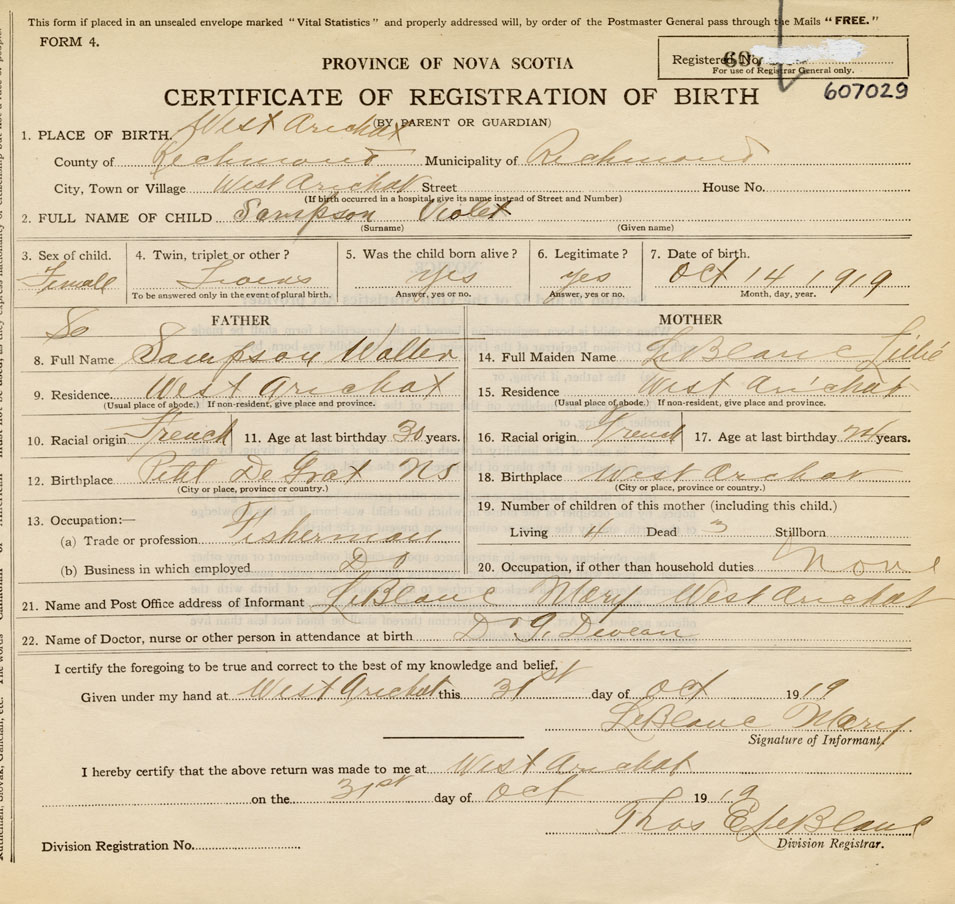 This form if placed in an unsealed envelope marked "Vital Statistics" and properly addressed will, by order of the Postmaster General pass through the Mails "FREE."
FORM 4.
Registered No. 60
For use of Registrar General only.
PROVINCE OF NOVA SCOTIA
607029
CERTIFICATE OF REGISTRATION OF BIRTH
(BY PARENT OR GUARDIAN)
1. PLACE OF BIRTH. West Arichat
County of Richmond Municipality of Richmond
City, Town or Village West Arichat Street House No.
(If birth occurred in a hospital, give its name instead of Street and Number)
2. FULL NAME OF CHILD Sampson Violet
(Surname) (Given name)
3. Sex of child. 4. Twin, triplet or other? 5. Was the child born alive? 6. Legitimate? 7. Date of birth.
Female Twins yes yes Oct 14 1919
To be answered only in the event of plural birth. Answer, yes or no. Answer, yes or no. Month, day, year.
FATHER MOTHER
8. Full Name Sampson Walter 14. Full Maiden Name LeBlanc Lillie
9. Residence. West Arichat 15. Residence West Arichat
(Usual place of abode.) If non-resident, give place and province. (Usual place of abode.) If non-resident, give place and province.
10. Racial origin French 11. Age at last birthday 30 years. 16. Racial origin French 17. Age at last birthday years.
12. Birthplace Petit De Grat NS 18. Birthplace West Arichat
(City or place, province or country.) (City or place, province or country.)
13. Occupation:— 19. Number of children of this mother (including this child.)
(a) Trade or profession Fisherman Living 4 Dead 3 Stillborn
(b) Business in which employed Do 20. Occupation, if other than household duties None
21. Name and Post Office address of Informant LeBlanc Mary West Arichat
22. Name of Doctor, nurse or other person in attendance at birth Dr Deveau
I certify the foregoing to be true and correct to the best of my knowledge and belief.
Given under my hand at West Arichat this 31st day of Oct 1919
LeBlanc Mary
Signature of Informant.
I hereby certify that the above return was made to me at West Arichat
on the 31st day of Oct 1919
Thos E LeBlanc
Division Registration No. Division Registrar.